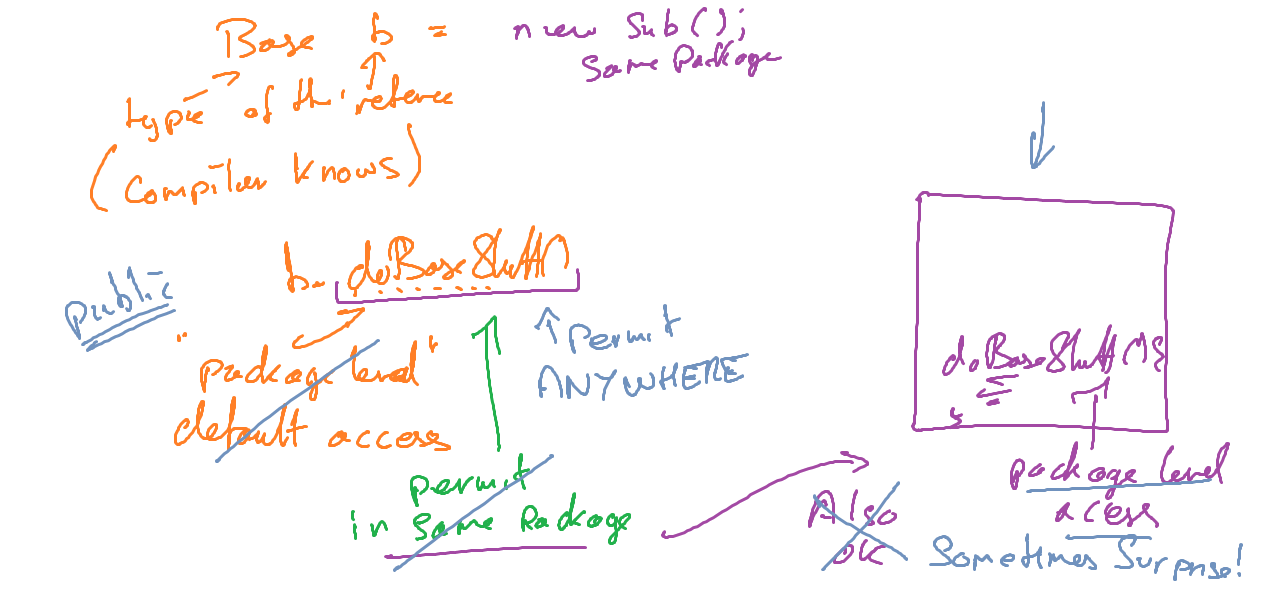 Base b = new Sub();
Same Package
type of the refence
(Compiler knows)
b. doBaseStuff()
public
"package level"
default access
permit
ANYWHERE
permit
in same Package
doBaseStuff(){
}
package level
acess
Also
OK
Sometimes Surprise!